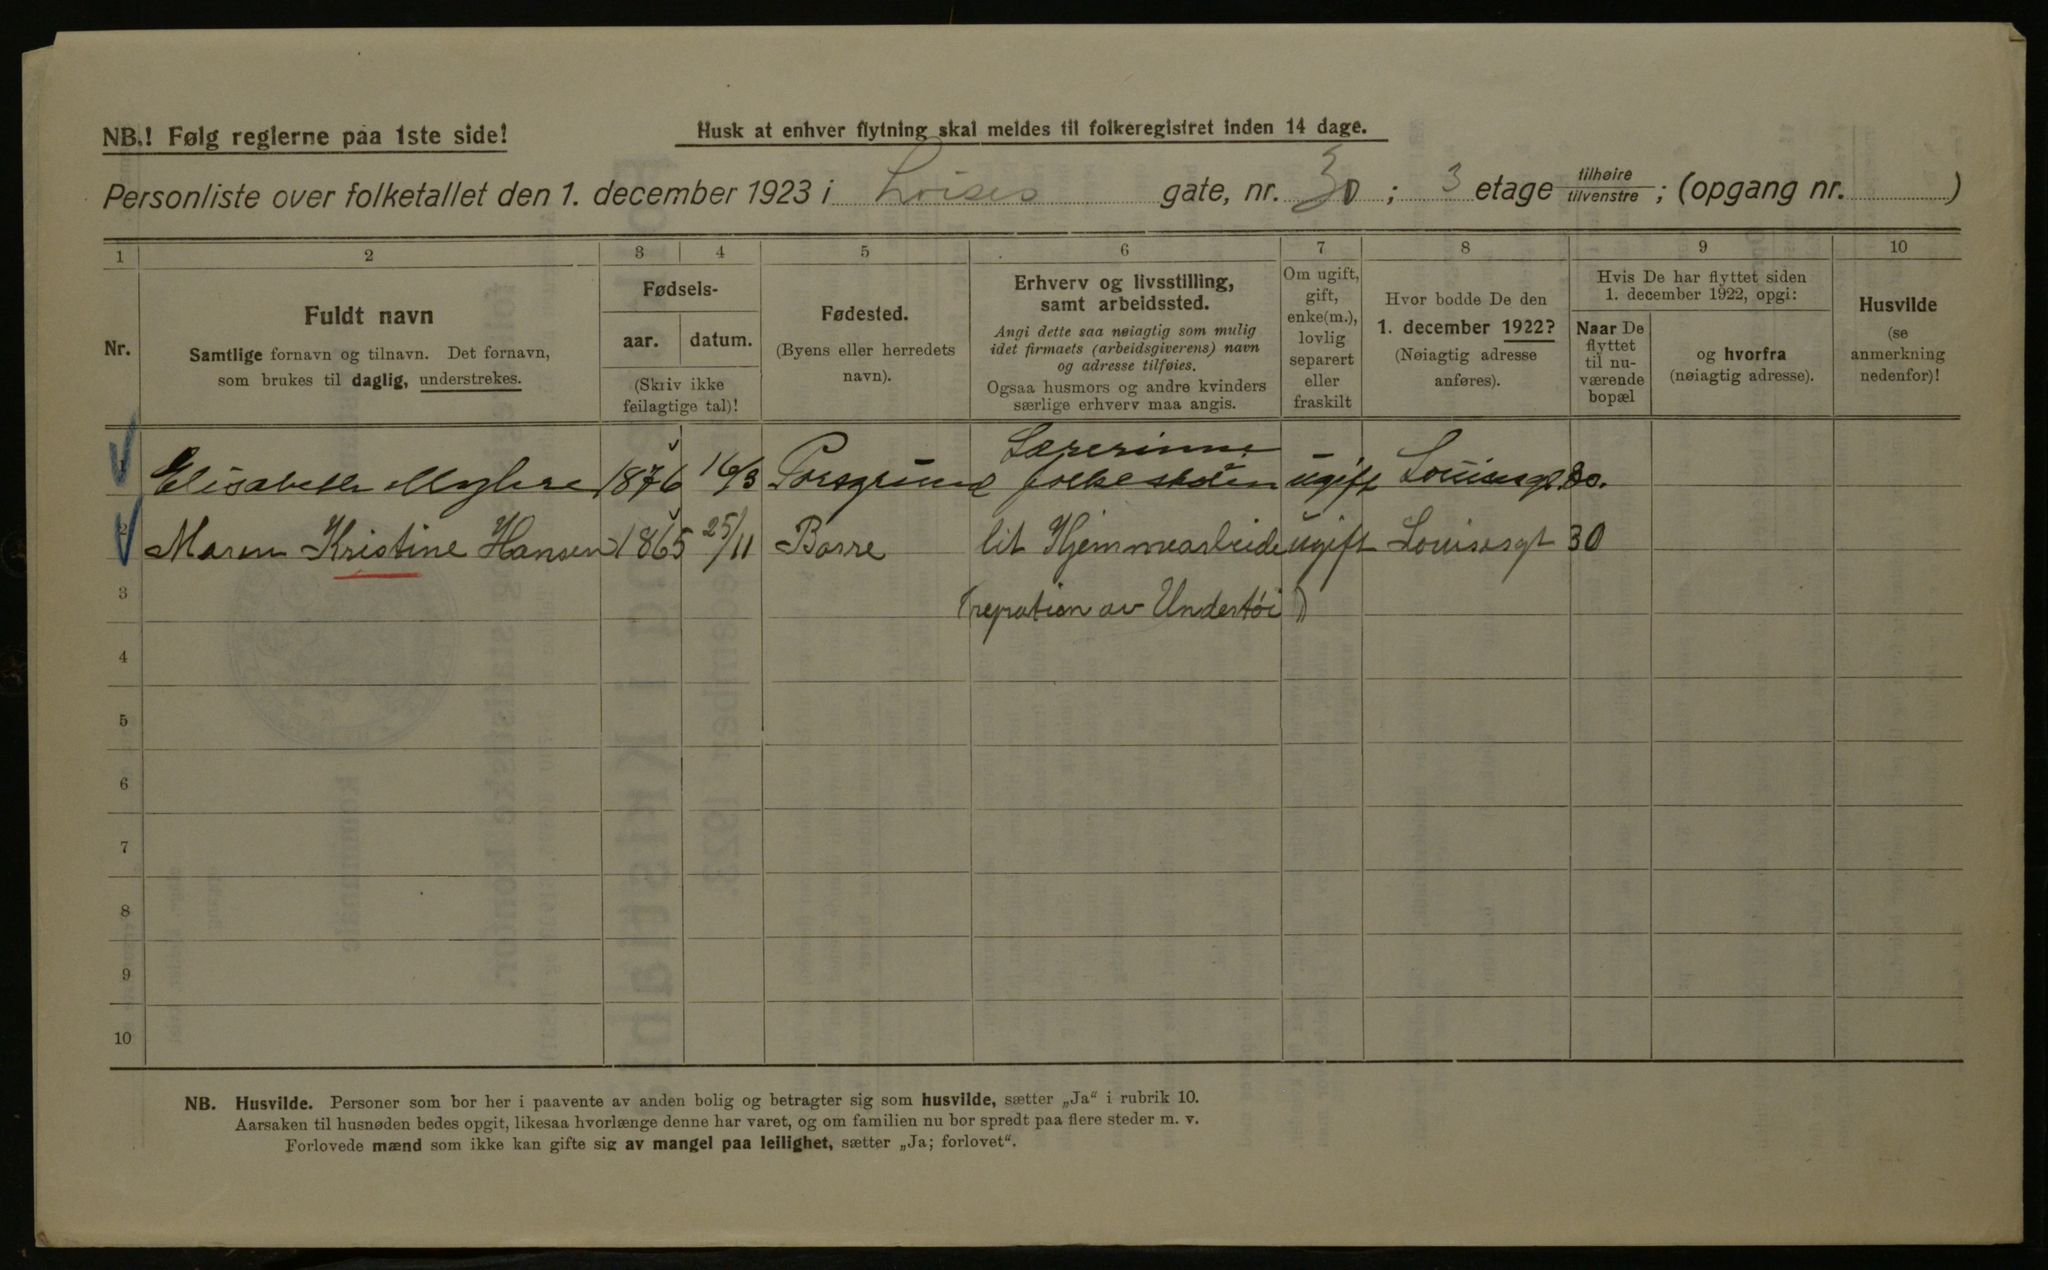 NB.! Følg reglerne paa 1ste side!
Husk at enhver flytning skal meldes til folkeregistret inden 14 dage.
Personliste over folketallet den 1. december 1923 i Loises gate, nr. 30; 3 etage tilhøire/tilvenstre; (opgang nr. )
1 2 3 4 5 6 7 8 9 10
Nr.
Fuldt navn
Samtlige fornavn og tilnavn. Det fornavn,
som brukes til daglig, understrekes.
Fødsels-
aar. datum.
(Skriv ikke
feilagtige tal)!
Fødested.
(Byens eller herredets
navn).
Erhverv og livsstilling,
samt arbeidssted.
Angi dette saa nøiagtig som mulig
idet firmaets (arbeidsgiverens) navn
og adresse tilføies.
Ogsaa husmors og andre kvinders
særlige erhverv maa angis.
Om ugift,
gift,
enke(m.),
lovlig
separert
eller
fraskilt
Hvor bodde De den
1. december 1922?
(Nøiagtig adresse
anføres).
Hvis De har flyttet siden
1. december 1922, opgi:
Naar De
flyttet
til nu-
værende
bopæl
og hvorfra
(nøiagtig adresse).
Husvilde
(se
anmerkning
nedenfor)!
Lærerinne
1 Elisabeth Myhre 1876 16/3 Porsgrund folkeskolen ugift Louisesgt. 30.
2 Maren Kristine Hansen 1865 25/11 Borre lit Hjemmearbeide ugift Louisesgt 30
3 (repration av Undertøi)
4
5
6
7
8
9
10
NB. Husvilde. Personer som bor her i paavente av anden bolig og betragter sig som husvilde, sætter „Ja“ i rubrik 10.
Aarsaken til husnøden bedes opgit, likesaa hvorlænge denne har varet, og om familien nu bor spredt paa flere steder m. v.
Forlovede mænd som ikke kan gifte sig av mangel paa leilighet, sætter „Ja; forlovet“.